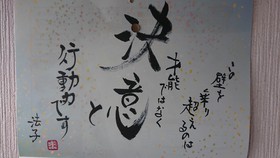 心の壁を
乗り超えるのは
才能ではなく
決意と
行動力です
法子